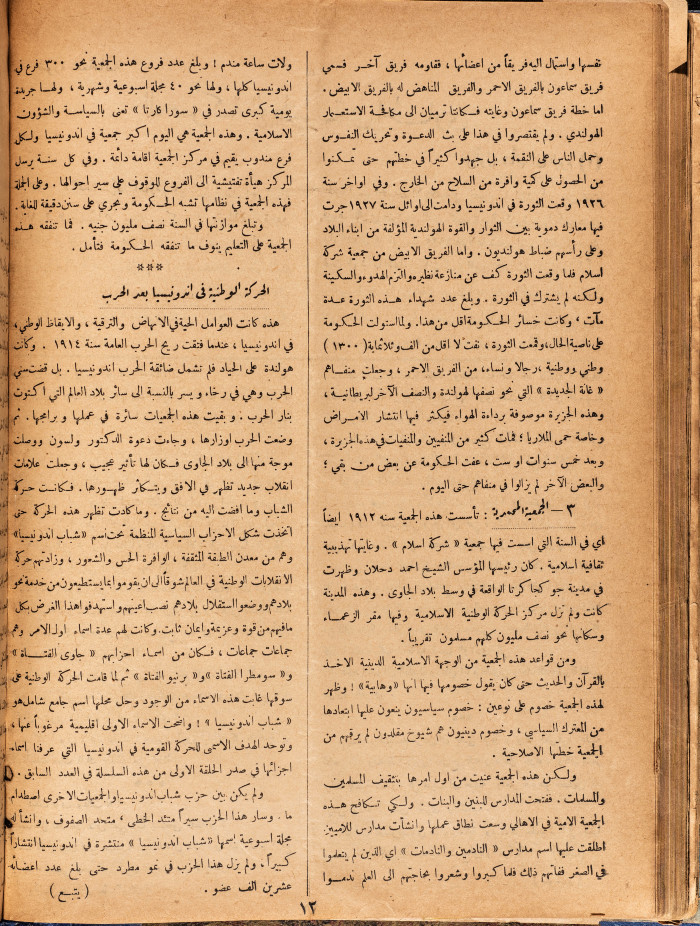 نفسها واستمال اليه فريقاً من اعضائها ، فقاومه فريق آخر فسمي
فريق سماعون بالفريق الاحمر والفريق المناهض له بالفريق الابيض .
اما خطة فريق سماعون وغايته فكانتا ترميان الى مكافحة الاستعمار
الهولندي . ولم يقتصروا في هذا على بث الدعوة وتحريك النفوس
وحمل الناس على النقمة ، بل جهدوا كثيراً في خطتهم حتى تمكنوا
من الحصول على كمية وافرة من السلاح من الخارج . وفي اواخر سنة
١٩٢٦ وقعت الثورة في اندونيسيا ودامت الى اوائل سنة ١٩٢٧ جرت
فيها معارك دموية بين الثوار والقوة الهولندية المؤلفة من ابناء البلاد
وعلى رأسهم ضباط هولنديون . واما الفريق الابيض من جمعية شركة
اسلام فلما وقعت الثورة كف عن منازعة نظيره والتزم الهدوء والسكينة
ولكنه لم يشترك في الثورة . وبلغ عدد شهداء هذه الثورة عدة
مآت ، وكانت خسائر الحكومة اقل من هذا . ولما استولت الحكومة
على ناصية الحال ، وقمعت الثورة ، نفت لا اقل من الف وثلاثماية ( ١٣٠٠ )
وطني ووطنية ، رجالا ونساء ، من الفريق الاحمر ، وجعلت منفاهم
« غانة الجديدة » التي نحو نصفها لهولندة والنصف الآخر لبريطانية ،
وهذه الجزيرة موصوفة برداءة الهواء فيكثر فيها انتشار الامراض
وخاصة حمى الملاريا ؛ فمات كثير من المنفيين والمنفيات في هذه الجزيرة ،
وبعد خمس سنوات او ست ، عفت الحكومة عن بعض من بقي ؛
والبعض الآخر لم يزالوا في منفاهم حتى اليوم .
٣ – الجمعية المحمدية : تأسست هذه الجمعية سنه ١٩١٢ ايضاً
اي في السنة التي اسست فيها جمعية « شركة اسلام » . وغايتها تهذيبية
ثقافية اسلامية . كان رئيسها المؤسس الشيخ احمد دحلان وظهرت
في مدينة جو كجا كرتا الواقعة في وسط بلاد الجاوى . وهذه المدينة
كانت ولم تزل مركز الحركة الوطنية الاسلامية وفيها مقر الزعماء
وسكانها نحو نصف مليون كلهم مسلمون تقريباً .
ومن قواعد هذه الجمعية من الوجهة الاسلامية الدينية الاخذ
بالقرآن والحديث حتى كان يقول خصومها فيها انها « وهابية » ! وظهر
لهذه الجمعية خصوم على نوعين : خصوم سياسيون ينعون عليها ابتعادها
من المعترك السياسي ، وخصوم دينيون هم شيوخ مقلدون لم يرقهم من
الجمعية خطتها الاصلاحية .
ولكن هذه الجمعية عنيت من اول امرها بتثقيف المسلمين
والمسلمات . ففتحت المدارس للبنين والبنات . ولكي تكافح هذه
الجمعية الامية في الاهالي وسعت نطاق عملها وانشأت مدارس للاميين
اطلقت عليها اسم مدارس « النادمين والنادمات » اي الذين لم يتعلموا
في الصغر ففاتهم ذلك فلما كبروا وشعروا بحاجتهم الى العلم ندموا
ولات ساعة مندم ! وبلغ عدد فروع هذه الجمعية نحو ٣٠٠ فرع في
اندونيسيا كلها ، ولها نحو ٤٠ مجلة اسبوعية وشهرية ، ولها جريدة
يومية كبرى تصدر في « سورا كارتا » تعنى بالسياسة والشؤون
الاسلامية . وهذه الجمعية هي اليوم اكبر جمعية في اندونيسيا ولكل
فرع مندوب يقيم في مركز الجمعية اقامة دائمة . وفي كل سنة يرسل
المركز هيأة تفتيشية الى الفروع للوقوف على سير احوالها . وعلى الجملة
فهذه الجمعية في نظامها تشبه الحكومة وتجري على سنن دقيقة للغاية .
وتبلغ موازنتها في السنة نصف مليون جنيه . فما تنفقه هذه
الجمعية على التعليم ينوف ما تنفقه الحكومة فتأمل .
***
الحركة الوطنية في اندونيسيا بعد الحرب
هذه كانت العوامل الحية في الانهاض والترقية ، والايقاظ الوطني ،
في اندونيسيا ، عندما فتقت ريح الحرب العامة سنة ١٩١٤ . وكانت
هولندة على الحياد فلم تشمل ضائقة الحرب اندونيسيا . بل قضت سني
الحرب وهي في رخاء ويسر بالنسبة الى سائر بلاد العالم التي اكتوت
بنار الحرب . وبقيت هذه الجمعيات سائرة في عملها وبرامجها . ثم
وضعت الحرب اوزارها ، وجاءت دعوة الدكتور ولسون ووصلت
موجة منها الى بلاد الجاوى فكان لها تأثير عجيب ، وجعلت علامات
انقلاب جديد تظهر في الافق ويتكاثر ظهورها . فكانت حركة
الشباب وما افضت اليه من نتائج . وما كادت تظهر هذه الحركة حتى
اتخذت شكل الاحزاب السياسية المنظمة تحت اسم « شباب اندونيسيا »
وهم من معدن الطبقة المثقفة ، الوافرة الحس والشعور ، وزادتهم حركة
الانقلابات الوطنية في العالم شوقاً الى ان يقوموا بما يستطيعون من خدمة نحو
بلادهم ووضعوا استقلال بلادهم نصب اعينهم واستهدفوا هذا الغرض بكل
مافيهم من قوة وعزيمة وايمان ثابت . وكانت لهم عدة اسماء اول الامر وهم
جماعات جماعات ، فكان من اسماء احزابهم « جاوى الفتاة »
و« سومطرا الفتاة » و« برنيو الفتاة » ثم لما قامت الحركة الوطنية على
سوقها غابت هذه الاسماء من الوجود وحل محلها اسم جامع شامل هو
« شباب اندونيسيا » ! واضحت الاسماء الاولى اقليمية مرغوباً عنها ،
وتوحد الهدف الاسمى للحركة القومية في اندونيسيا التي عرفنا اسماء
اجزائها في صدر الحلقة الاولى من هذه السلسلة في العدد السابق .
ولم يكن بين حزب شباب اندونيسيا والجمعيات الاخرى اصطدام
ما . وسار هذا الحزب سيراً متئد الخطى ، متحد الصفوف ، وانشأ له
مجلة اسبوعية اسمها « شباب اندونيسيا » منتشرة في اندونيسيا انتشاراً
كبيراً ، ولم يزل هذا الحزب في نمو مطرد حتى بلغ عدد اعضائه
عشرين الف عضو . ( يتبع )
١٢